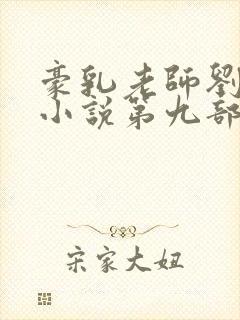 豪乳老師劉
小說第九部
宋家大妞